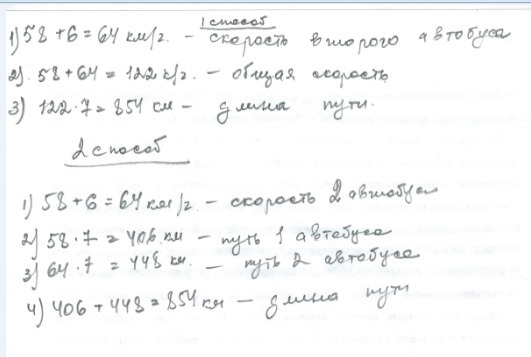 1 способ
1) 58 + 6 = 64 км/г. - скорость второго автобуса
2) 58 + 64 = 122 к/г. - общая скорость
3) 122 · 7 = 854 км - длина пути.
2 способ
1) 58 + 6 = 64 км/г. - скорость 2 автобуса
2) 58 · 7 = 406 км - путь 1 автобуса
3) 64 · 7 = 448 км. - путь 2 автобуса
4) 406 + 448 = 854 км - длина пути